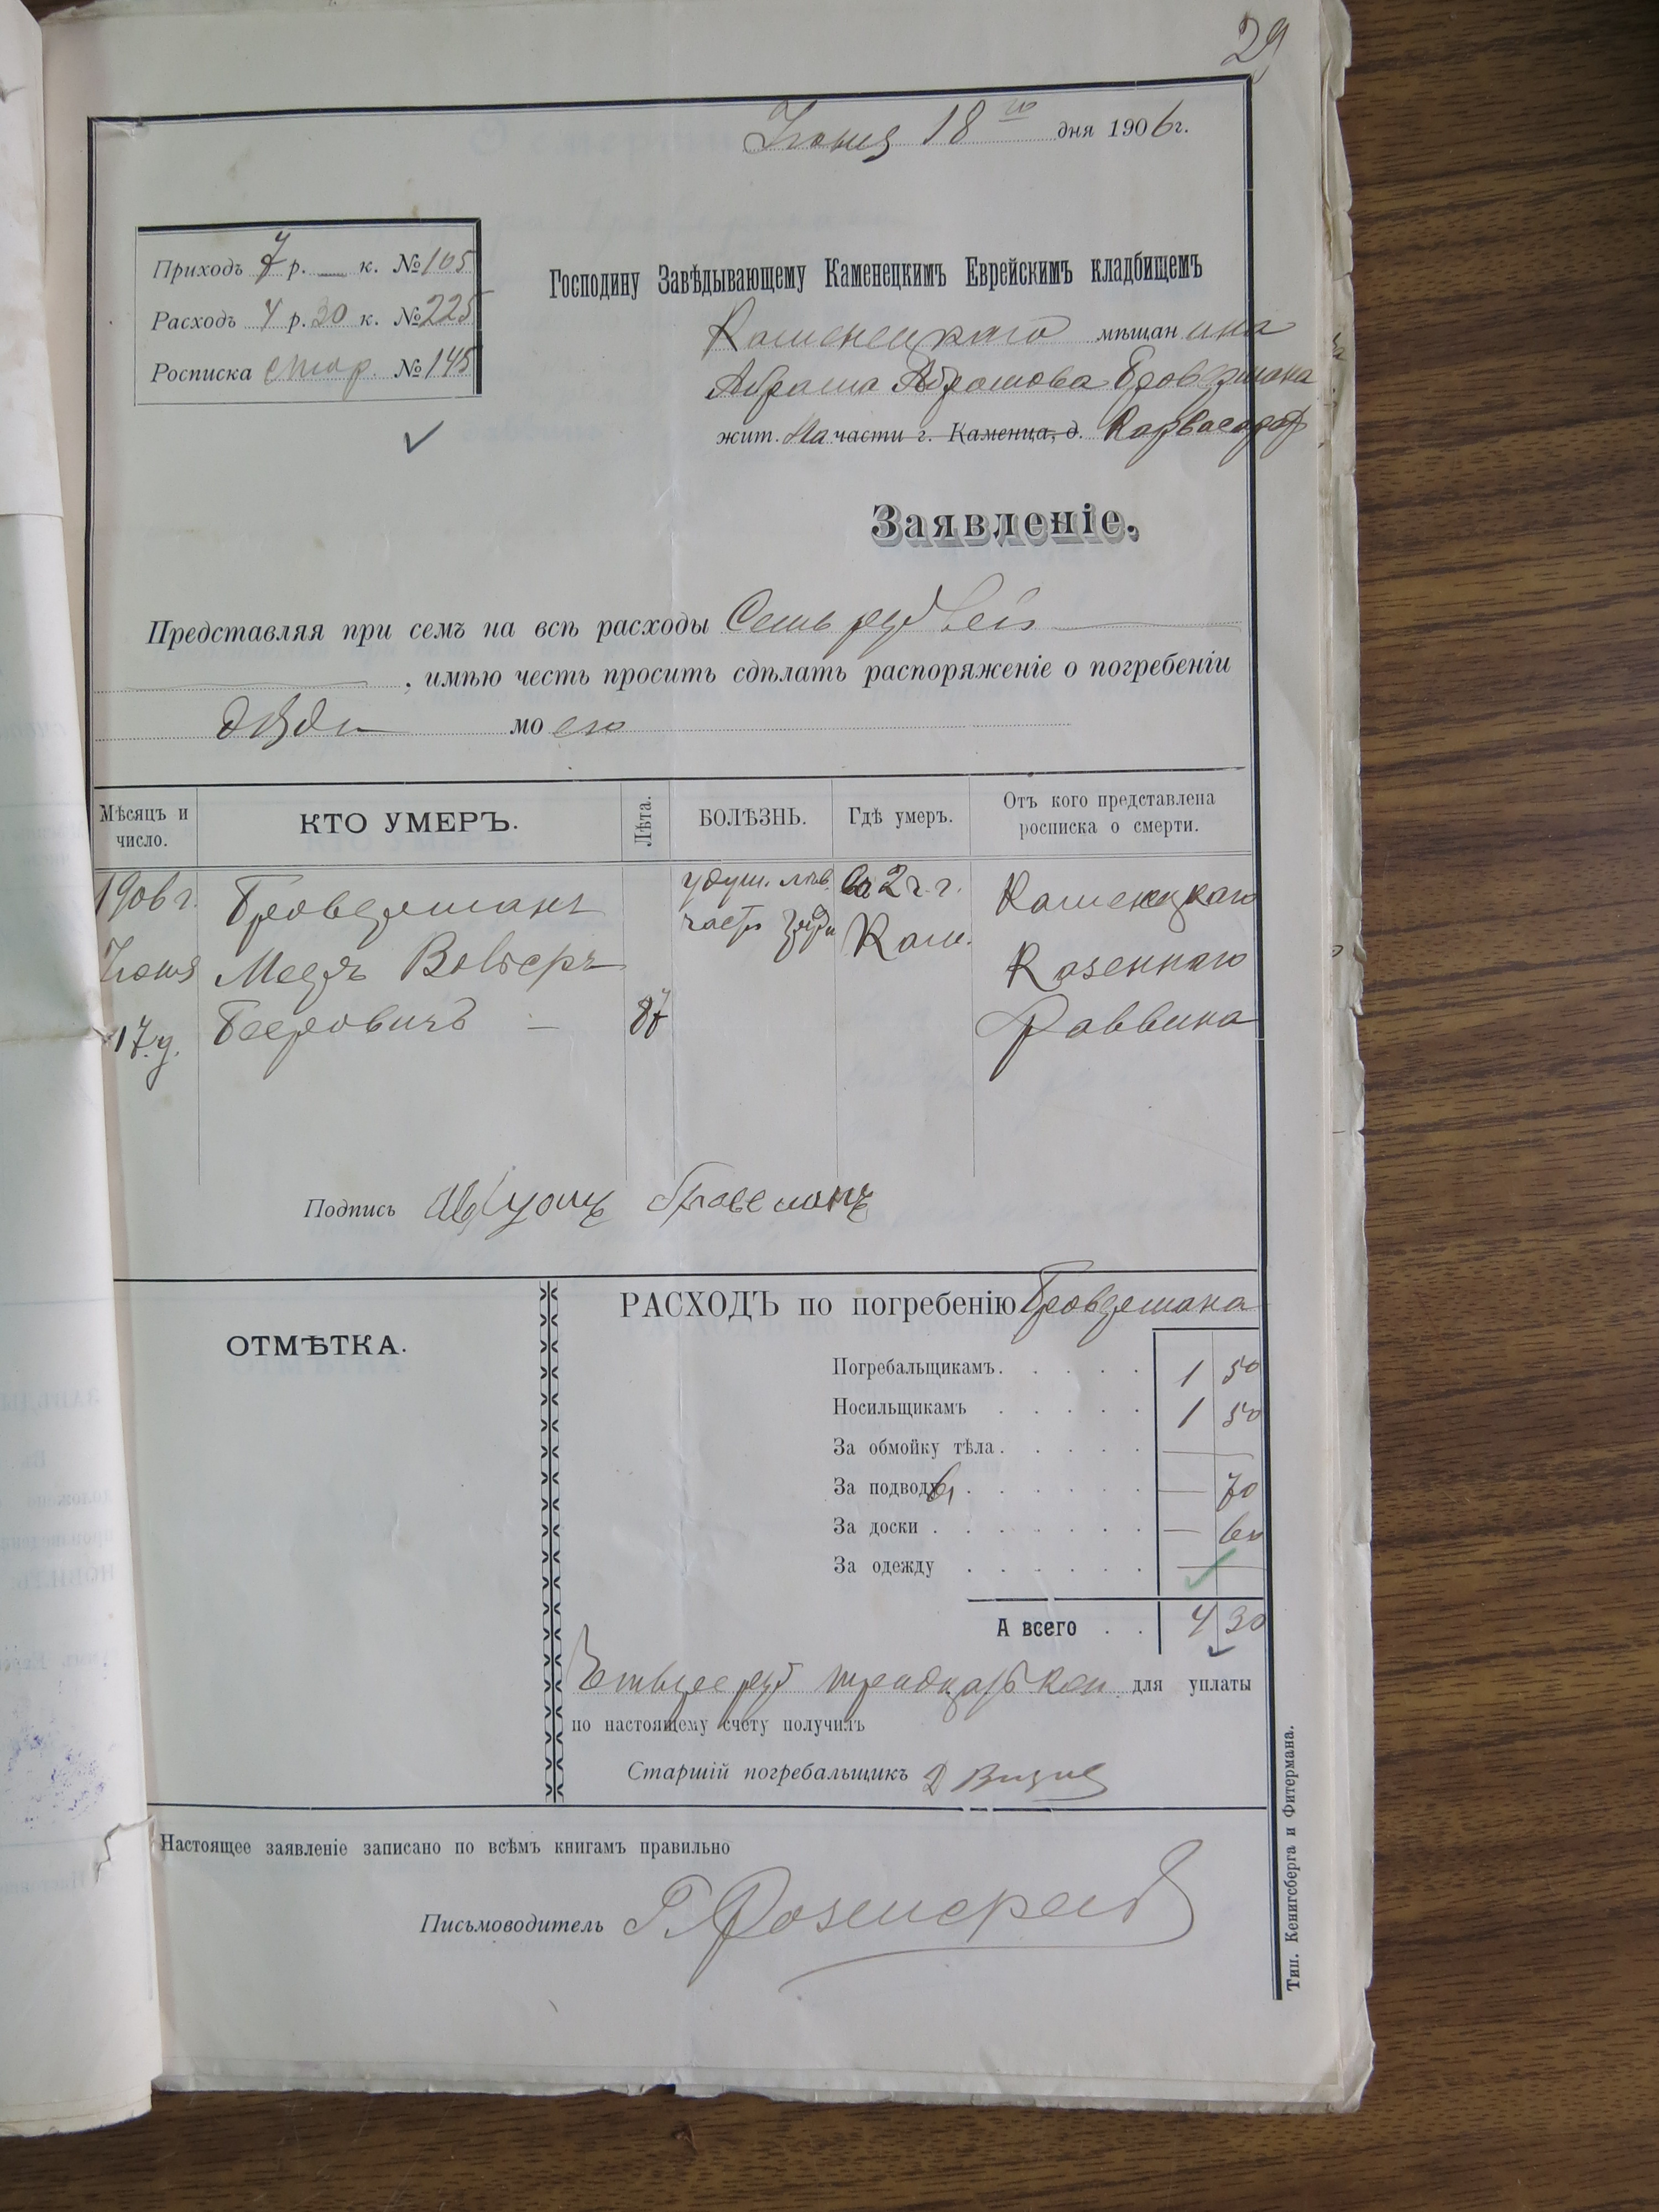 29
Іюня 18 го дня 1906 г.
Приходъ 7 р. — к. № 105
Расходъ 4 р. 30 к. № 225
Росписка стар. № 145
Господину Завѣдывающему Каменецкимъ Еврейскимъ кладбищемъ
Каменецкаго мѣщанина
Абрама Абрамова Бровермана
жит. На части г. Каменца, д. Карвасарах
Заявленіе.
Представляя при семъ на всѣ расходы Семь рублей
, имѣю честь просить сдѣлать распоряженіе о погребеніи
дѣда моего
Мѣсяцъ и число. КТО УМЕРЪ. Лѣта. БОЛѢЗНЬ. Гдѣ умеръ. Отъ кого представлена росписка о смерти.
1906 г. Броверманъ част. во 2 ч. г. Каменецкаго
Іюня Кам. Казеннаго
17 д. Беровичъ — 87 Раввина
Подпись
ОТМѢТКА.
РАСХОДЪ по погребенію Бровермана
Погребальщикамъ. . . . . 1 50
Носильщикамъ . . . . . 1 50
За обмойку тѣла. . . . . —
За подводы . . . . . . — 70
За доски . . . . . . . — 60
За одежду . . . . . . —
А всего . . 4 30
Етыре руб тридцать коп. для уплаты
по настоящему счету получилъ
Старшій погребальщикъ Д
Настоящее заявленіе записано по всѣмъ книгамъ правильно
Письмоводитель Г.
Тип. Кенигсберга и Фитермана.